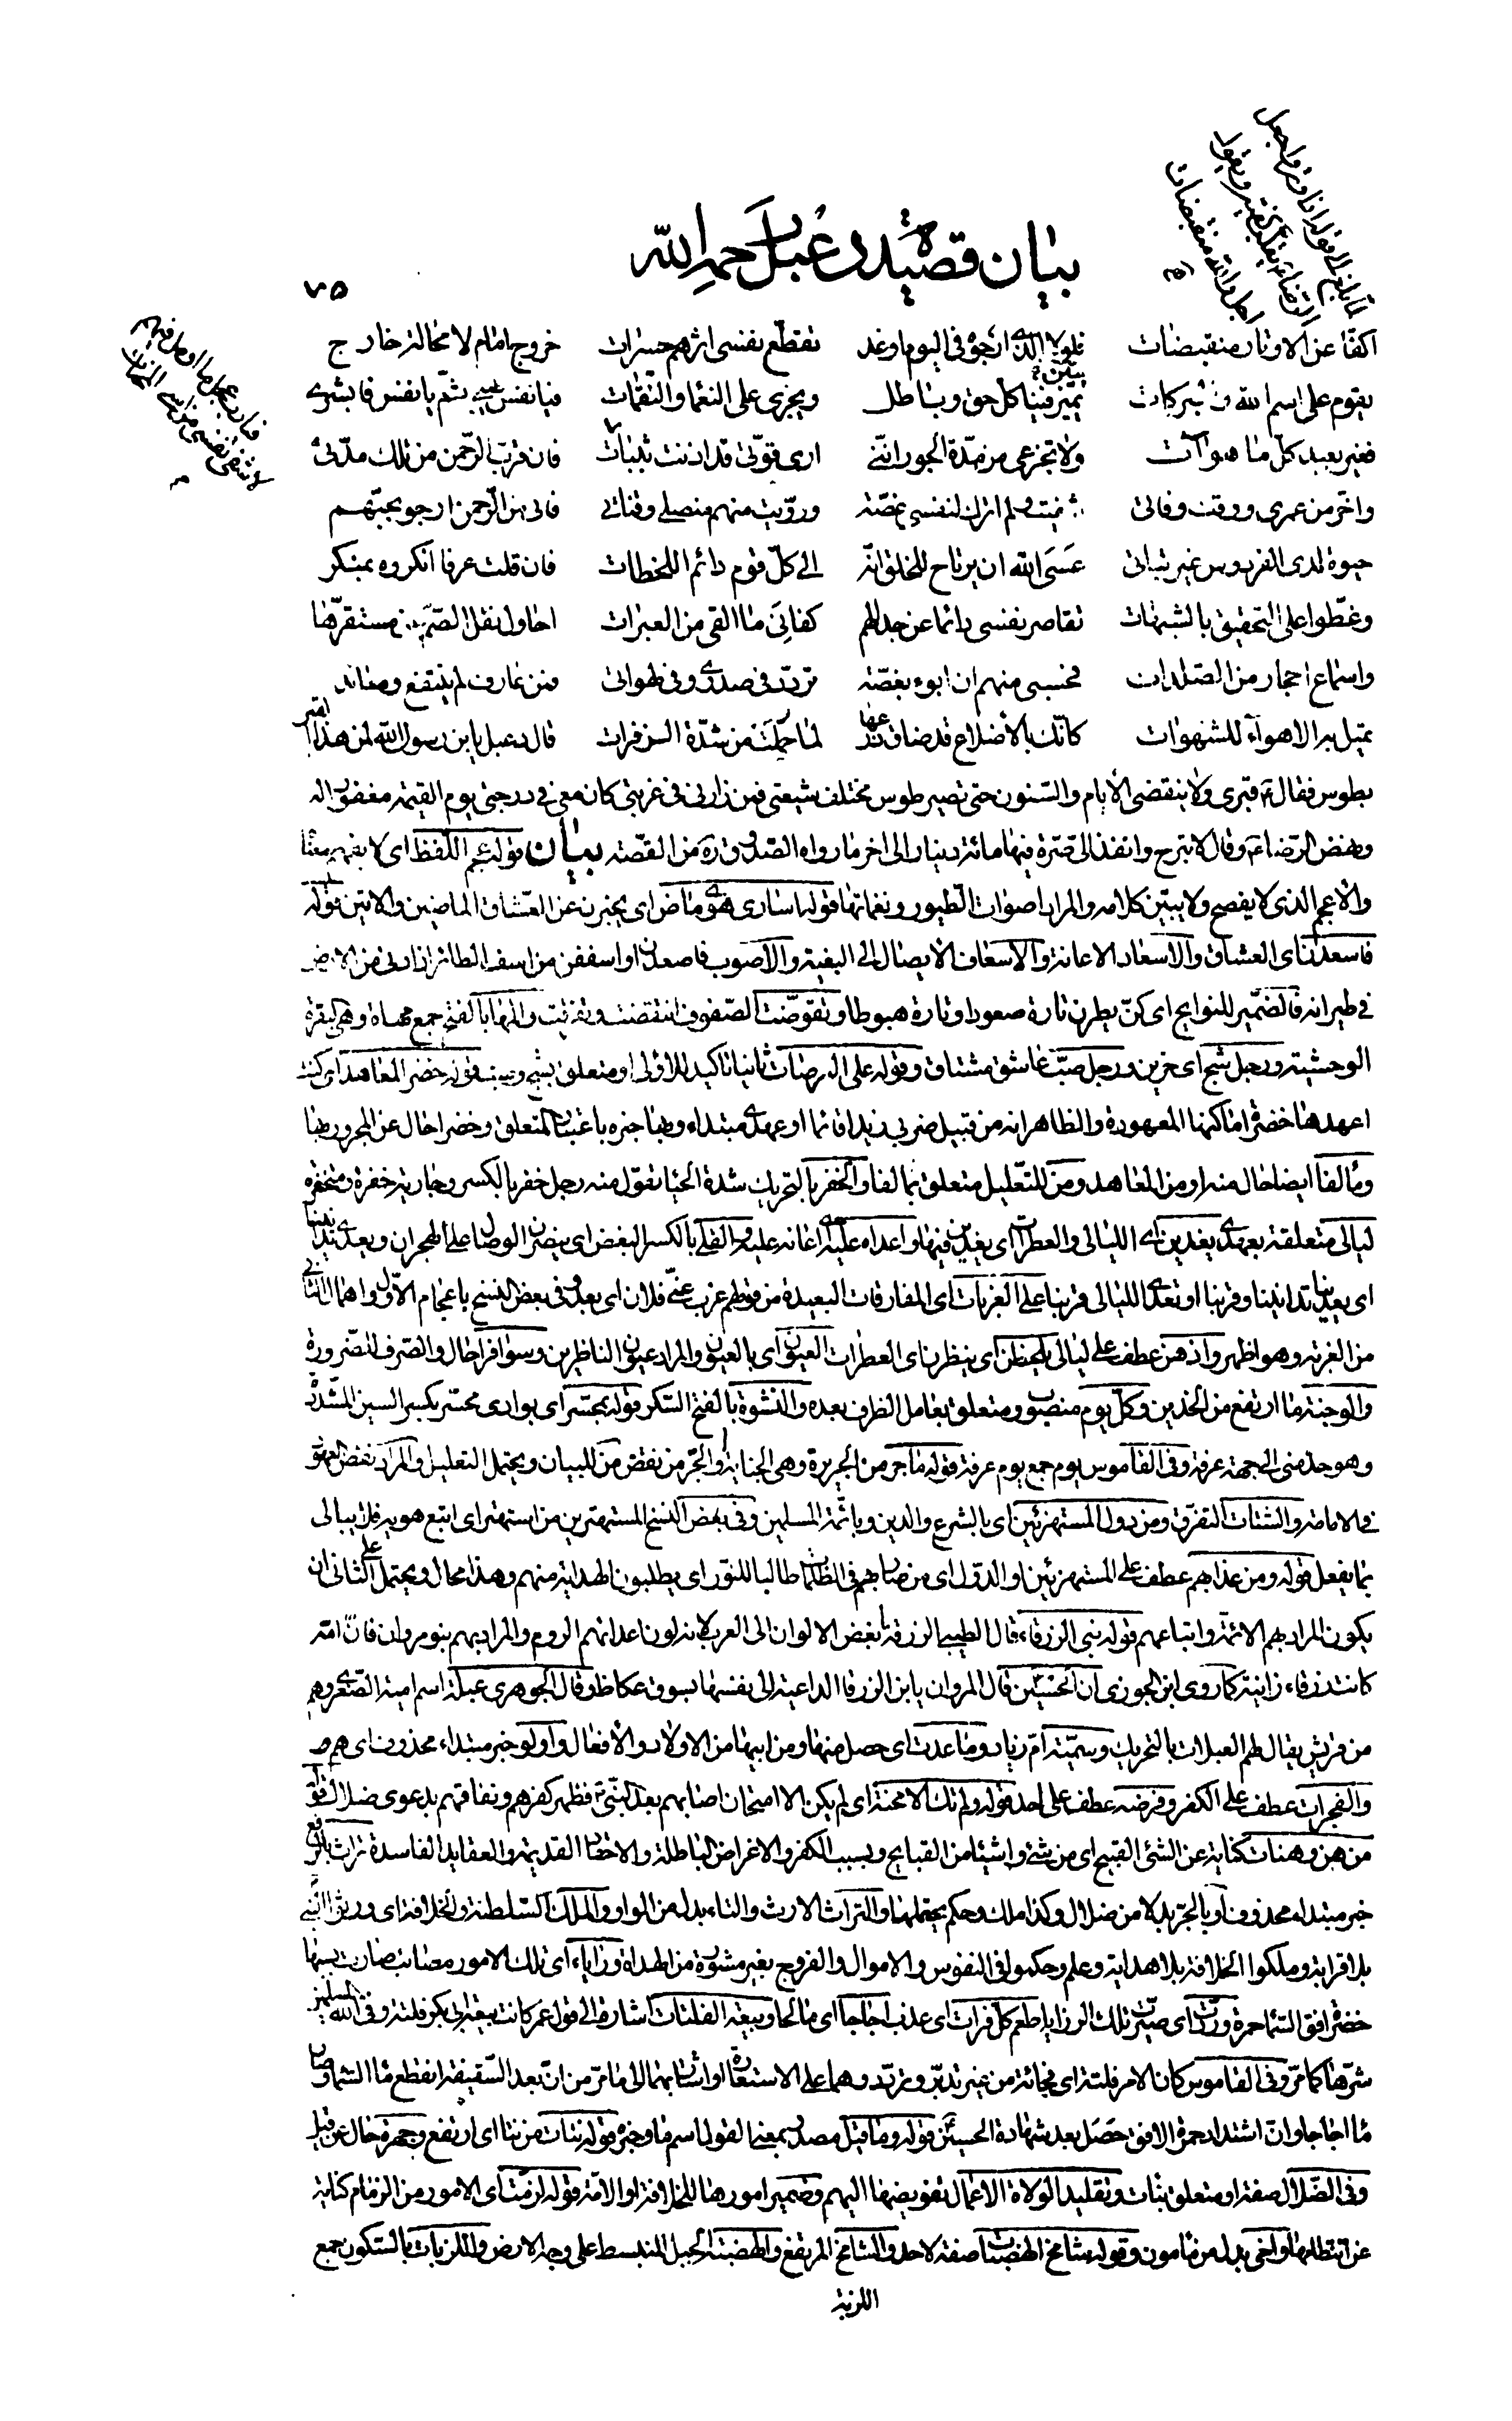 بيان قصيدة دعبل رحمه الله
٧٥
اكفّا عن الاوتار منقبضات فلولا الذي ارجوه في اليوم او غد تقطّع نفسي اثرهم حسرات خروج امام لا محالة خارج
يقوم على اسم الله والبركات يميّز فينا كل حق وباطل ويجزي على النعماء والنّقمات فيا نفس طيبي ثمّ يا نفس فابشري
فغير بعيد كلّ ما هو آت ولا تجزعي من مدّة الجور انّني ارى قوّتي قد اذنت بثبات فان قرّب الرّحمن من تلك مدّتي
واخّر من عمري ووقت وفاتي شفيت ولم اترك لنفسي غصّة وروّيت منهم منصلي وقناتي فاني من الرّحمن ارجو بحبّهم
حيوة لدى الفردوس غير تباتي عسى الله ان يرتاح للخلق انّه الى كلّ قوم دائم اللحظات فان قلت عرفا انكروه بمنكر
وغطّوا على التحقيق بالشبهات تقاصر نفسي دائما عن جدالهم كفاني ما القى من العبرات احاول نقل الصمّ عن مستقرّها
واسماع احجار من الصّلدات فحسبي منهم ان ابوء بغصّة تردّد في صدري وفي لهواتي فمن عارف لم ينتفع ومعاند
تميل به الاهواء للشهوات كانّك بالاضلاع قد ضاق ذرعها لما حمّلت من شدّة الزفرات قال دعبل يا بن رسول الله لمن هذا القبر
بطوس فقال ع قبري ولا ينقضي الأيام والسّنون حتى تصير طوس مختلف شيعتي فمن زارني في غربتي كان معي في درجتي يوم القيمة مغفورا له
ونهض الرّضا ع وقال لا تبرح وانفذ الى صرّة فيها مائة دينار الى اخر ما رواه الصّدوق ره من القصّة بيان قوله عجم اللّفظ اي لا يفهم معناه
والأعجم الذي لا يفصح ولا يبيّن كلامه والمراد اصوات الطيور ونغماتها قوله اسارى هوى ماض اي يخبرن عن العشّاق الماضين والاتين قوله
فاسعدن اي العشاق والاسعاد الاعانة والاسعاف الايصال الى البغية والاصوب فاصعدن او اسففن من اسف الطائر اذا دنى من الارض
في طيرانه فالضمير للنوايح اي كنّ يطرن تارة صعودا وتارة هبوطا وتقوّضت الصّفوف انتقضت وتفرّقت والمها بالفتح جمع مهاة وهي البقرة
الوحشية ورجل شج اي حزين ورجل صبّ عاشق مشتاق وقوله على العرصات ثانيا تاكيد للاولى او متعلق بشج وصب قوله خضر المعاهد اي كنت
اعهدها خضرة اماكنها المعهودة والظاهر انه من قبيل ضربي زيدا قائما او عهدي مبتداء وبها خبره باعتبار المتعلق وخضرا حال عن المجرور بها
ومألفا ايضا حال منه او من المعاهد ومن للتّعليل متعلق بمالفا والخفر بالتحريك شدة الحيا تقول منه رجل خفر بالكسر وجارية خفرة ومتخفرة
ليالي متعلقة بعهدي يعدين اي الليالي والعطرات اي يعدين فيها واعداه عليه اعانه عليه والقلى بالكسر البغض اي ينصرن الوصل على الهجران ويعدى تدانينا
اي يعدينا تدانينا وقربنا او تعدي الليالي قربنا على الغربات اي المفارقات البعيدة من قولهم عزب عنّي فلان اي بعد وفي بعض النسخ باعجام الاوّل واهمال الثاني
من الغربة وهو اظهر واذ هن عطف على ليالي يلحظن اي ينظرن اي العطرات العيون اي بالعيون والمراد عيون الناظرين وسوافرا حال والصّرف للضرورة
والوجنة ما ارتفع من الخدين وكلّ يوم منصوب ومتعلق بعامل الظرف بعده والنشوة بالفتح السّكر قوله بمحسّر اي بوادي محسّر بكسر السين المشدّدة
وهو حد منى الى جهة عرفة وفي القاموس يوم جمع يوم عرفة قوله ما جر من الجريرة وهي الجناية او الجرّ من نقض من للبيان ويحتمل التعليل والمراد نقض العهود
في الامامة والشتات التفرّق ومن دول المستهزئين اي بالشرع والدين وبائمة المسلمين وفي بعض النسخ المستهترين من استهتر اي اتبع هويه فلا يبالي
بما يفعل قوله ومن غذاهم عطف على المستهزئين او الدّول اي من صار بهم في الظلمات طالبا للنّور اي يطلبون الهداية منهم وهذا محال ويحتمل على الثاني ان
يكون المراد بهم الائمّة واتباعهم قوله بني الزرقاء قال الطيبي الزرقة ابغض الالوان الى العرب لانه لون اعدائهم الروم والمراد بهم بنو مروان فانّ امّه
كانت زرقاء زانية كما روى ابن الجوزي ان الحسين قال لمروان يا بن الزرقا الداعية الى نفسها بسوق عكاظ وقال الجوهري عبلة اسم امية الصّغرى وهم
من قريش يقال لهم العبلات بالتحريك وسميّة امّ زياد وما عدت اي حصل منها ومن ابيها من الاولاد والافعال واولو خبر مبتداء محذوف اي هم
والفجرات عطف على الكفر وفرضه عطف على احد قوله ولم تك الا محنة اي لم يكن الا امتحان اصابهم بعد النّبي ص فظهر كفرهم ونفاقهم بدعوى ضلال قوله
من هن وهنات كناية عن الشئ القبيح اي من شئ واشياء من القبايح وبسبب الكفر والاغراض الباطلة والاحقاد القديمة والعقايد الفاسدة تراث بالرفع
خبر مبتداء محذوف او بالجرّ بدلا من ضلال وكذا ملك وحكم يحتملهما والتراث الارث والتاء بدل من الواو والملك السلطنة والخلافة اي ورثوا النّبي
بلا قرابة وملكوا الخلافة بلا هداية وعلم وحكموا في النفوس والاموال والفروج بغير مشورة من الهداة رزايا اي تلك الامور مصائب صارت بسببها
خضرة افق السّما حمرة وردّت اي صيّرت تلك الرزايا طعم كلّ فرات اي عذب اجاجا اي مالحا وبيعة الفلتات اشارة الى قول عمر كانت بيعة ابي بكر فلتة وقى الله المسلمين
شرّها كما مرّ وفي القاموس كان الامر فلتة اي فجائة من غير تدبّر وتردّد وهما على الاستعارة او اشارتهما الى ما مرّ من ان بعد السّقيفة انقطع ماء السّماء وصار
ماء اجاجا وان اشتداد حمرة الافق حصل بعد شهادة الحسين قوله وما قيل مصدر بمعنى القول اسم ما وخبره قوله بتات من نتا اي ارتفع وجهرة حال عن قيل
وفي الضّلال صفة او متعلق بتات وتقليد الولاة الاعمال تفويضها اليهم وضمير امورها للخلافة او الامّة قوله لزمّت اي الامور من الزمام كناية
عن انتظامها واخي بدل من مامون وقوله شامخ الهضبات صفة لاحد والشامخ المرتفع والهضبة الجبل المنبسط على وجه الارض واللزبات بالسّكون جمع
اللزبة